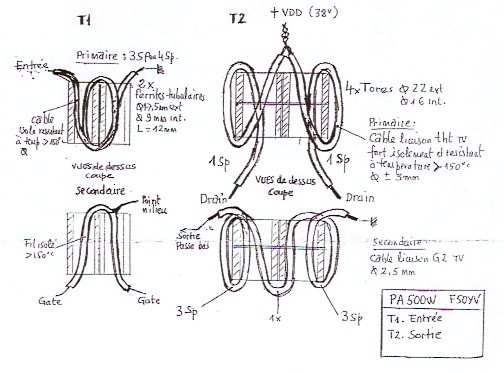 T1
Primaire : 3Sp ou 4Sp.
Entrée
Cable
isolé resistant
à temp > 150°
2x
Ferrites tubulaires
Ø 17,5mm ext
& 9 mm int.
L = 12mm
VUES de dessus
coupe
Secondaire
Point
milieu
Fil isolé
>150°C
Gate
Gate
T2
+ VDD (38V)
4x Tores Ø 22 ext
Ø 16 int.
Primaire :
Cable liaison tht TV
fort isolement et resistant
à température > 150°C
Ø ± 5mm
1 Sp
1 Sp
VUES de dessus
coupe
Drain
Drain
Sortie
Passe bas
Secondaire
Cable liaison G2 TV
Ø 2,5 mm
3 Sp
1x
3 Sp
PA 500W F5OYV
T1. Entrée
T2. Sortie